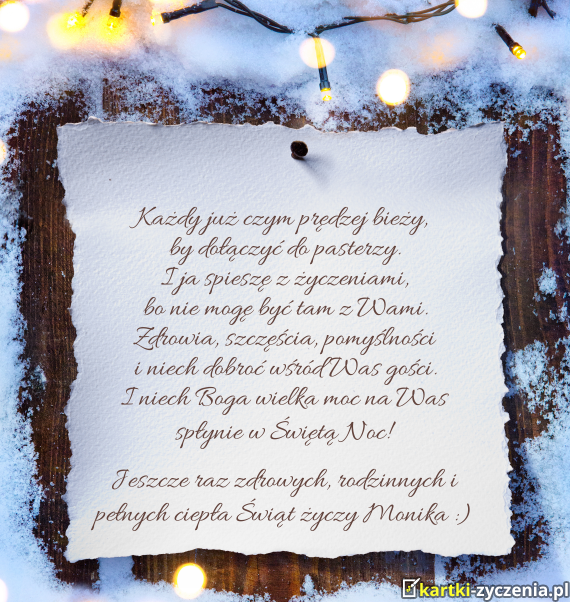 Każdy już czym prędzej bieży,
by dołączyć do pasterzy.
I ja spieszę z życzeniami,
bo nie mogę być tam z Wami.
Zdrowia, szczęścia, pomyślności
i niech dobroć wśród Was gości.
I niech Boga wielka moc na Was
spłynie w Świętą Noc!
Jeszcze raz zdrowych, rodzinnych i
pełnych ciepła Świąt życzy Monika :)
kartki-zyczenia.pl